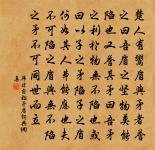 楚人有鬻盾與矛者譽
之曰吾盾之堅物莫能
陷也又譽其矛曰吾矛
之利於物無不陷也或
曰以子之矛陷子之盾
何如其人弗能應也夫
不可陷之盾與無不陷
之矛不可同世而立